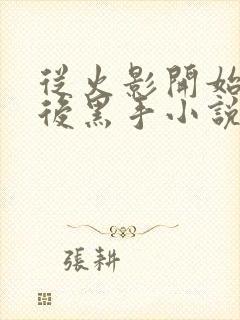 從火影開始
後黑手小說
張耕